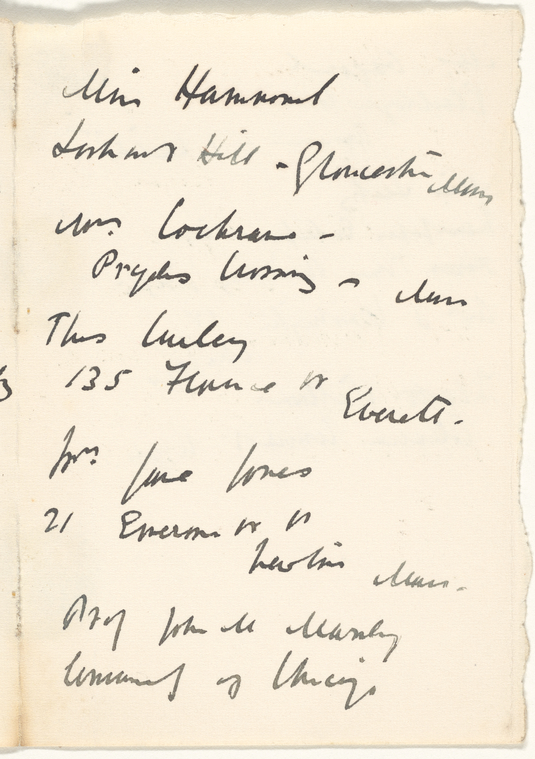 Miss Hammond
Hill - Gloucester Mass
Mrs. Cochrane -
Prydes Crossing - Mass
Thos Curley
135 Florence St
Everett.
Mrs Jane Jones
21 Emerson St
Newton Mass.
Prof John M Manly
University of Chicago